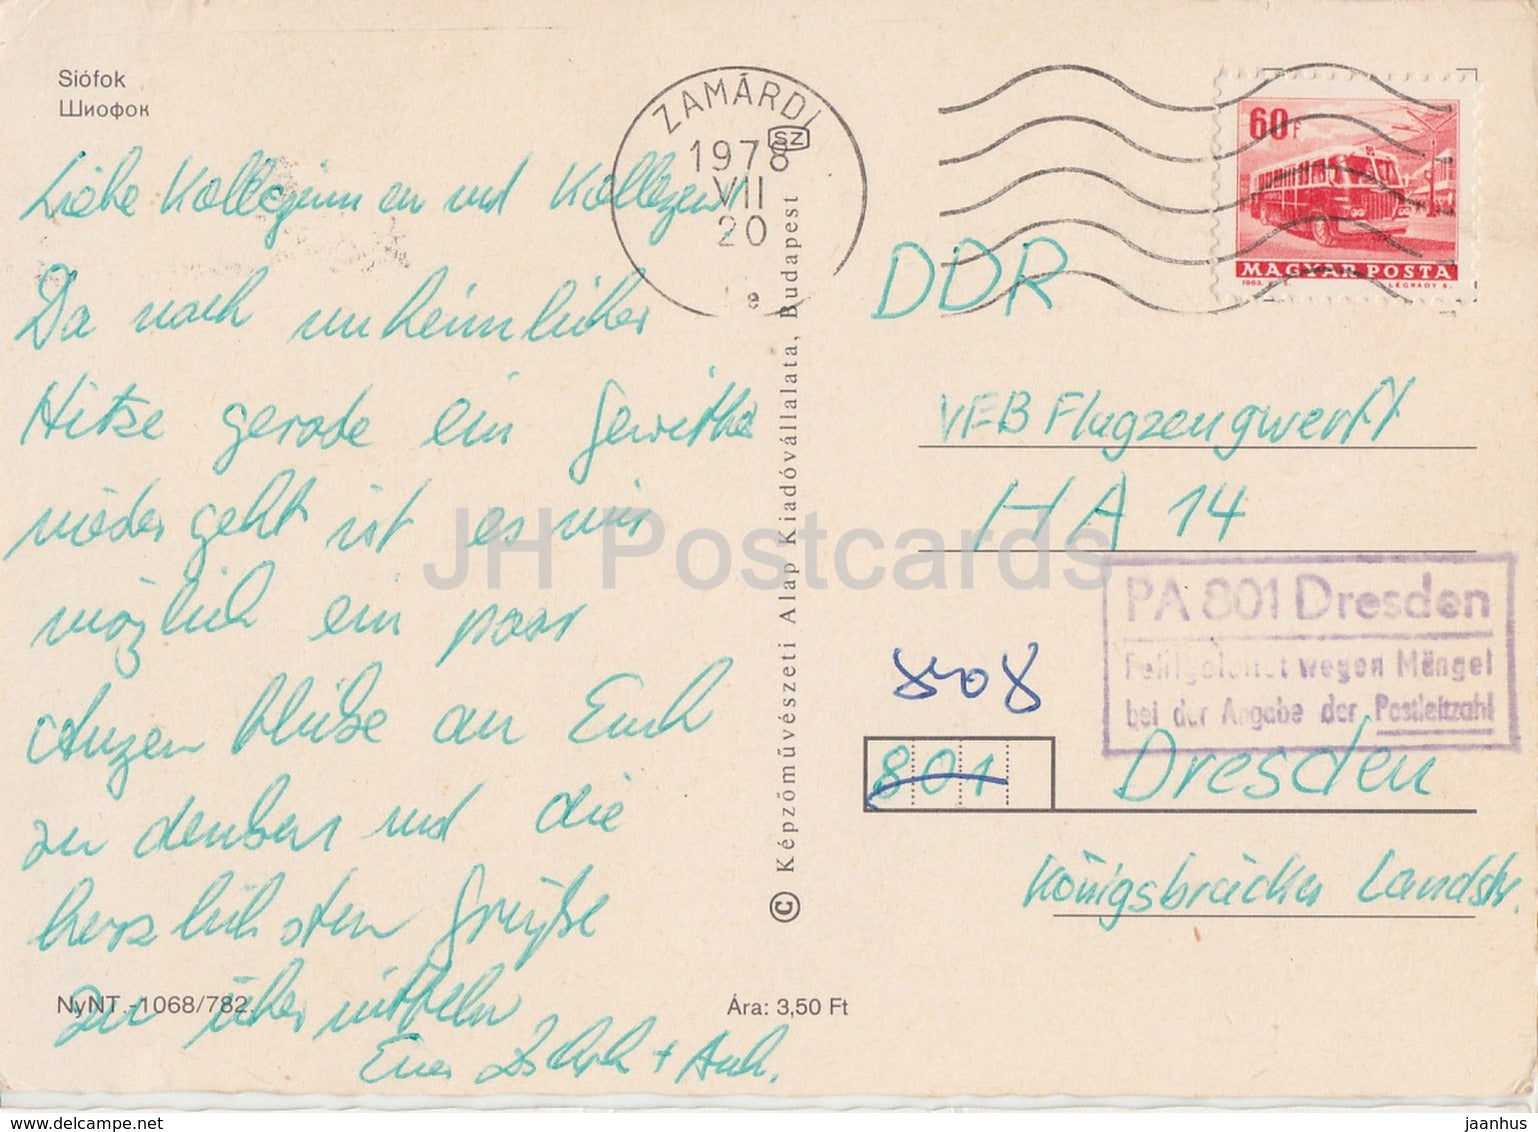 Siófok
Шиофок
ZAMÁRDI
SZ
1978
VII
20
e
60f
MAGYAR POSTA
LÉGRÁDY S.
Liebe Kolleginnen und Kollegen!
Da nach unheimlicher
Hitze gerade ein Gewitter
nieder geht ist es mir
möglich ein paar
Augenblicke an Euch
zu denken und die
herzlichsten Grüße
zu übermitteln
Euer
NyNT.-1068/782.
Ára: 3,50 Ft
© Képzőművészeti Alap Kiadóvállalata, Budapest
DDR
VEB Flugzeugwerft
HA 14
PA 801 Dresden
Fehlgeleitet wegen Mängel
bei der Angabe der Postleitzahl
8408
801
Dresden
Königsbrücker Landstr.
JH Postcards
www.delcampe.net
jaanhus